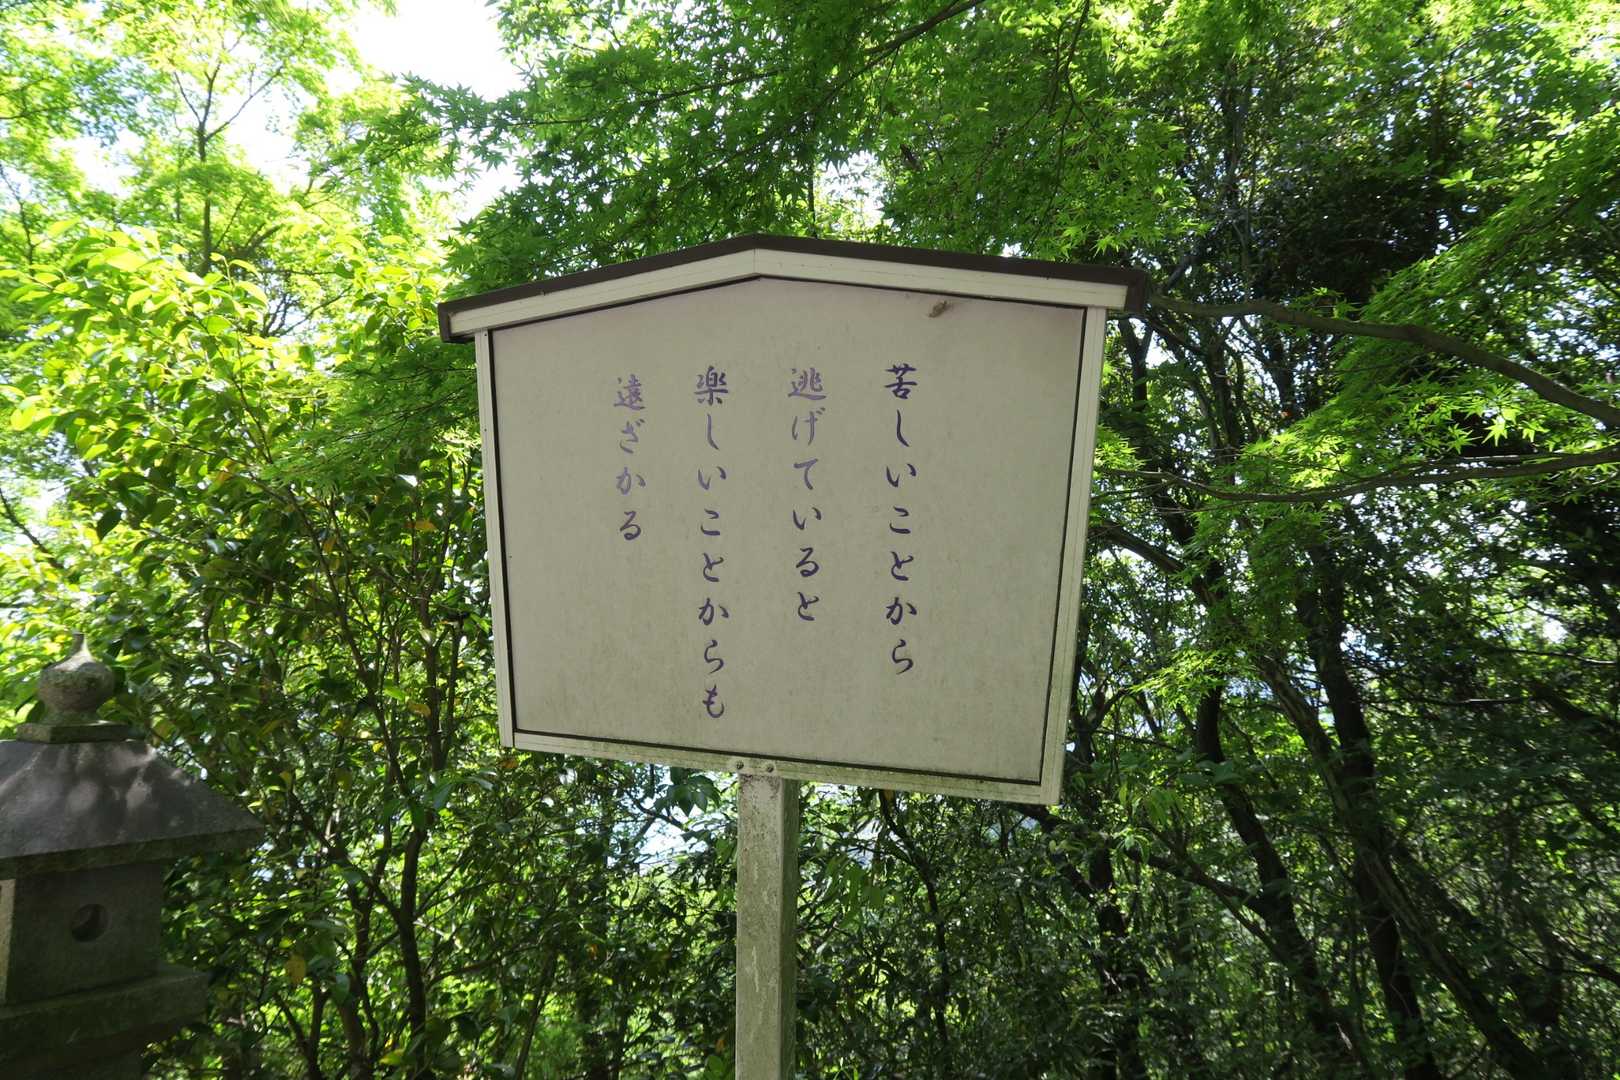 苦しいことから
逃げていると
楽しいことからも
遠ざかる